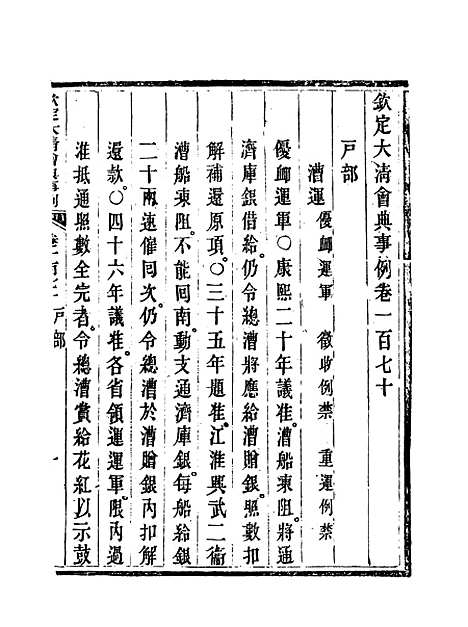 欽定大清會典事例卷一百七十
戶部
漕運 優卹運軍 徵收例禁 重運例禁
優卹運軍○康熙二十年議准漕船凍阻將通
濟庫銀借給仍令總漕將應給漕贈銀照數扣
解補還原項○三十五年題准江淮興武二衞
漕船凍阻不能回南動支通濟庫銀每船給銀
二十兩速催回次仍令總漕於漕贈銀內扣解
還款○四十六年議准各省領運運軍限內過
淮抵通照數全完者令總漕賞給花紅以示鼓
欽定大清會典事例 戶部 一